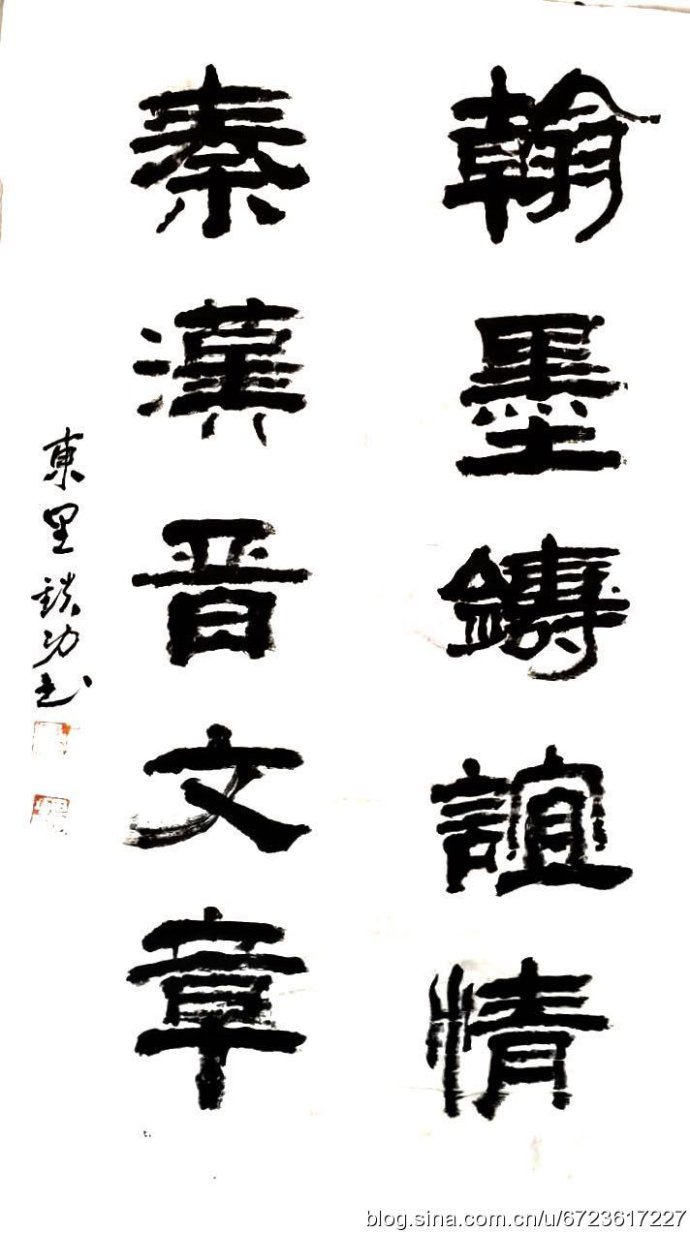 翰墨鑄誼情
秦漢晉文章
東里鉄功书
blog.sina.com.cn/u/6723617227